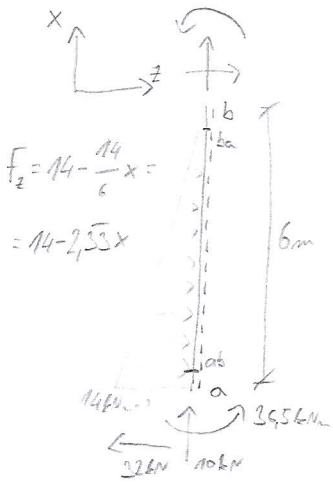 X
z
b
ba
F_z = 14 - 14/6 x =
= 14 - 2,33 x
6m
ab
a
36,5kNm
32kN
10kN